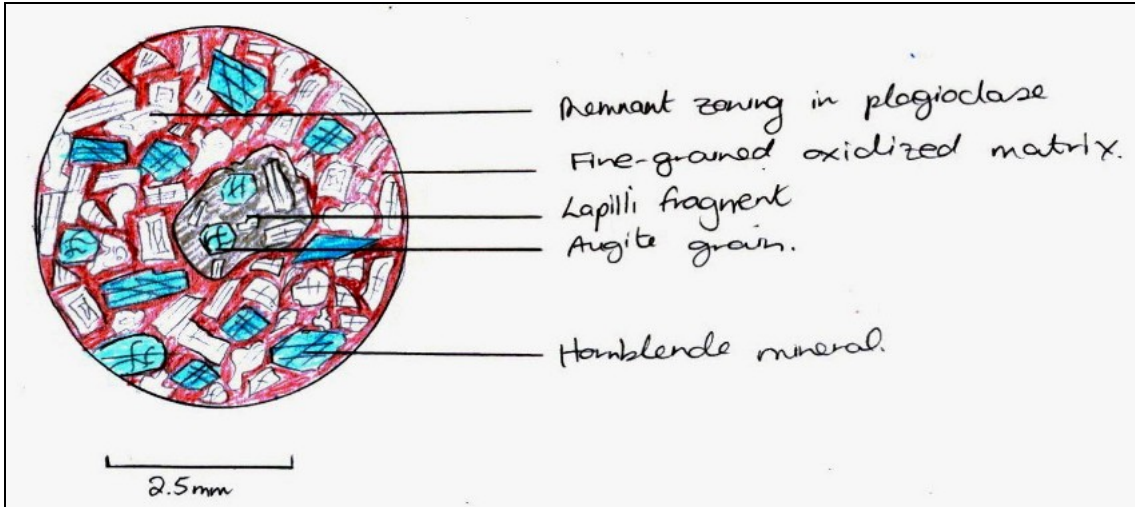 Remnant zoning in plagioclase
Fine-grained oxidized matrix.
Lapilli fragment
Augite grain.
Hornblende mineral.
2.5mm